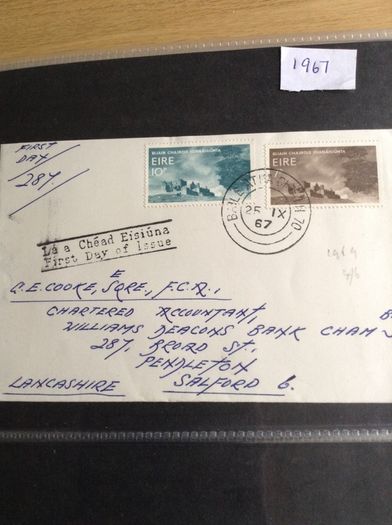 1967
FIRST
DAY
287/
BLIAIN CHAIRDE IDIRNÁISIÚNTA
ÉIRE
10P
BLIAIN CHAIRDE IDIRNÁISIÚNTA
ÉIRE
25 IX
67
Lá a Chéad Eisiúna
First Day of Issue
E
C.E. COOKE, SQRE., F.C.A.,
CHARTERED ACCOUNTANT,
WILLIAMS DEACONS BANK CHAM
287, BROAD ST.,
PENDLETON
LANCASHIRE SALFORD 6.